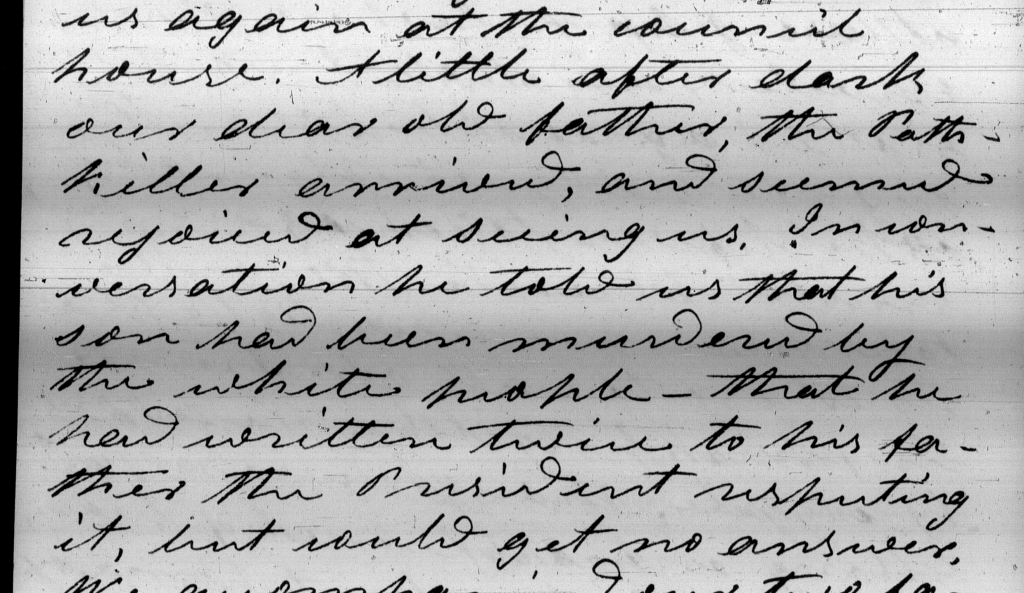 us again at the council
house. A little after dark
our dear old father, the Path-
killer arrived, and seemed
rejoiced at seeing us. In con-
versation he told us that his
son had been murdered by
the white people - that he
had written twice to his fa-
ther the President respecting
it, but could get no answer.
We